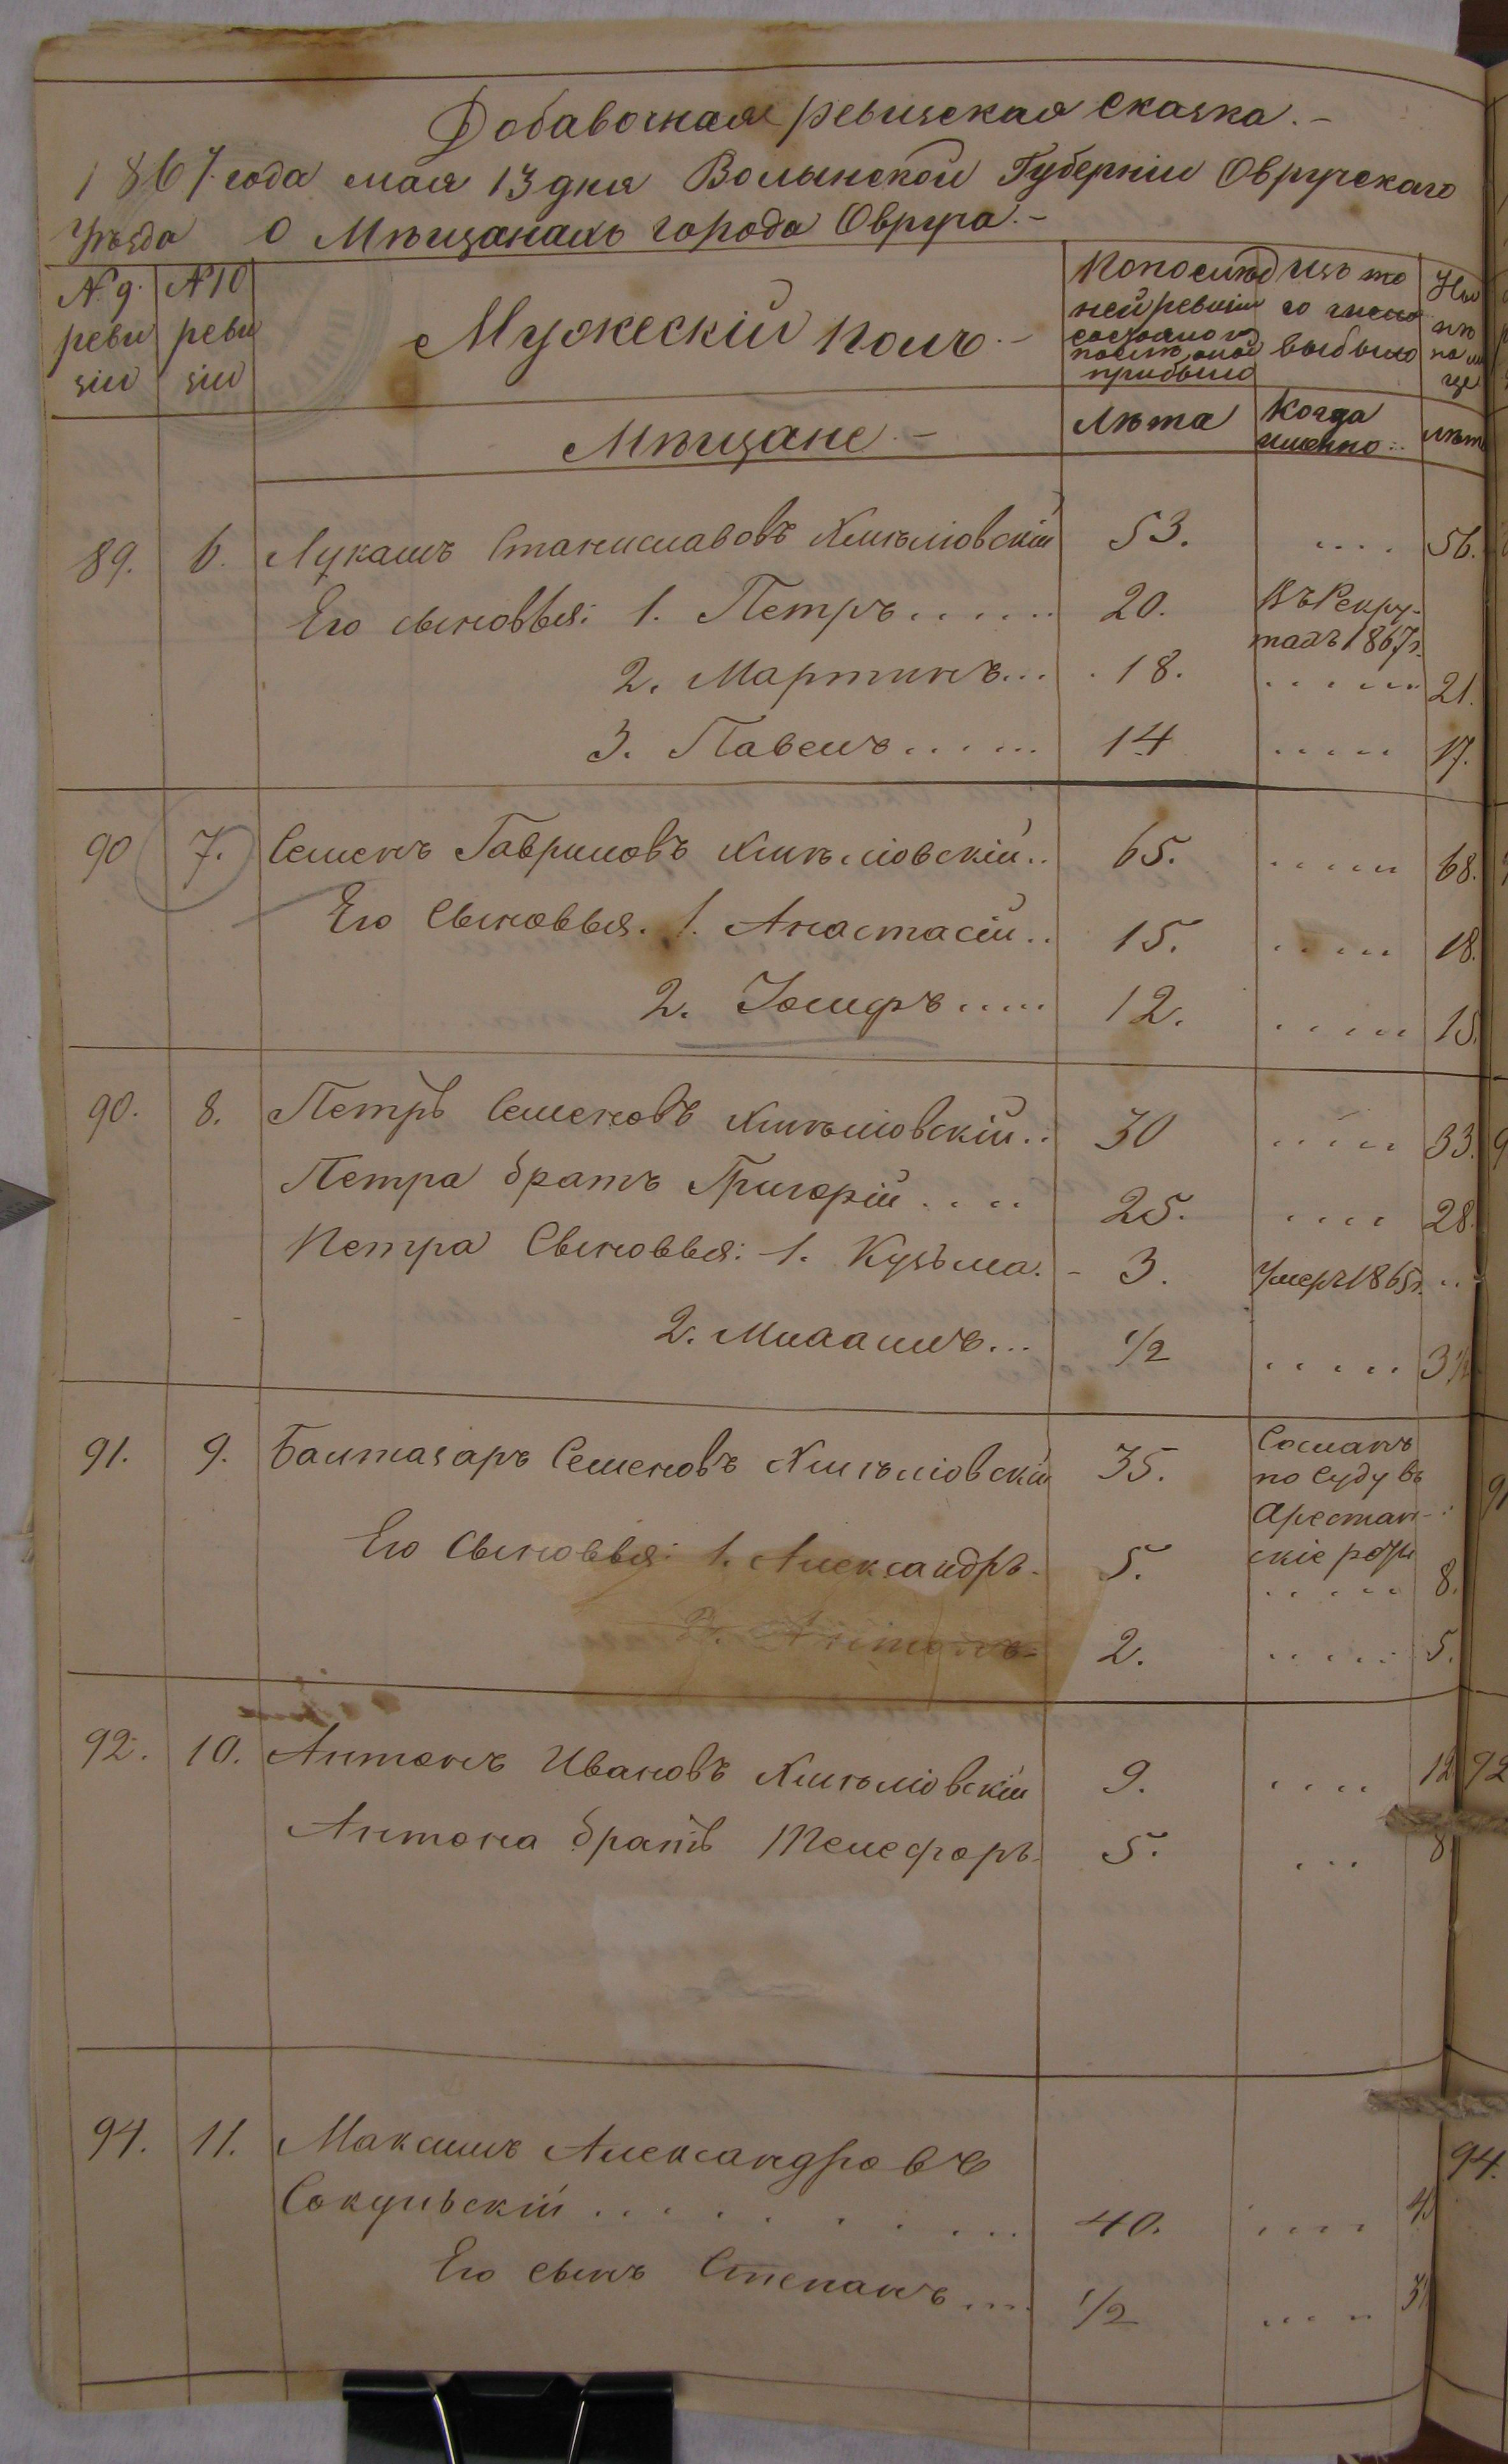 Добавочная ревизская сказка.-
1867 года мая 13 дня Волынской Губерніи Овручскаго
Уѣзда О Мѣщанахъ города Овруча.-
№ 9. ревизіи № 10 ревизіи Мужескій полъ.- По послѣдней ревизіи состояло и послѣ оной прибыло Изъ того числа выбыло Нынѣ на лице
Мѣщане.- Лѣта Когда именно Лѣта
89. 6. Лукашъ Станиславовъ Хмѣлiовскій 53. .... 56.
Его сыновья: 1. Петръ...... 20. Въ Рекру-
тахъ 1867 г.
2. Мартинъ... 18. ...... 21.
3. Павелъ...... 14 ..... 17.
90 7. Семенъ Гавриловъ Хмѣлiовскій.. 65. ..... 68.
Его Сыновья. 1. Анастасій.. 15. ..... 18.
2. Iосифъ..... 12. ..... 15.
90. 8. Петръ Семеновъ Хмѣлiовскій.. 30 ..... 33.
Петра братъ Григорій.... 25. .... 28.
Петра Сыновья: 1. Кузьма.- 3. Умеръ 1865 г. ..
2. ... 1/2 ..... 3 1/2
91. 9. Балтазаръ Семеновъ Хмѣлiовскій 35. Сосланъ
по суду въ
Арестан-
скіе роты
Его Сыновья: 1. Александръ. 5. ..... 8.
2. Антонъ- 2. ..... 5.
92. 10. Антонъ Ивановъ Хмѣлiовскій 9. .... 12 92
Антона братъ Телефоръ. 5. ... 8
94. 11. Максимъ Александровъ 94.
Сокульскій.......... 40. ....
Его сынъ Степанъ.... 1/2 .....